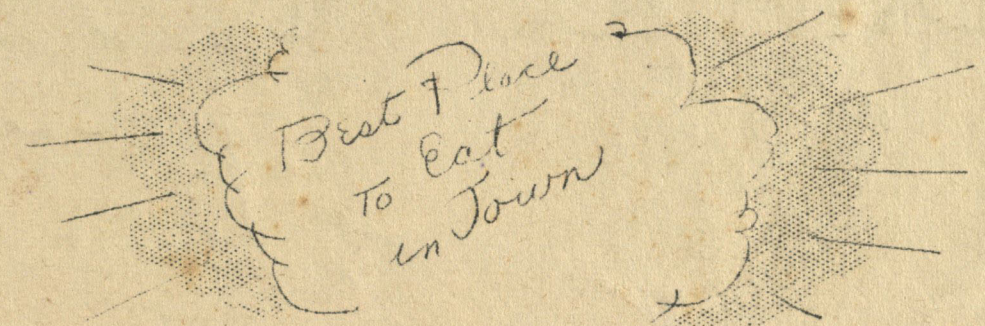 Best Place
To Eat
in Town